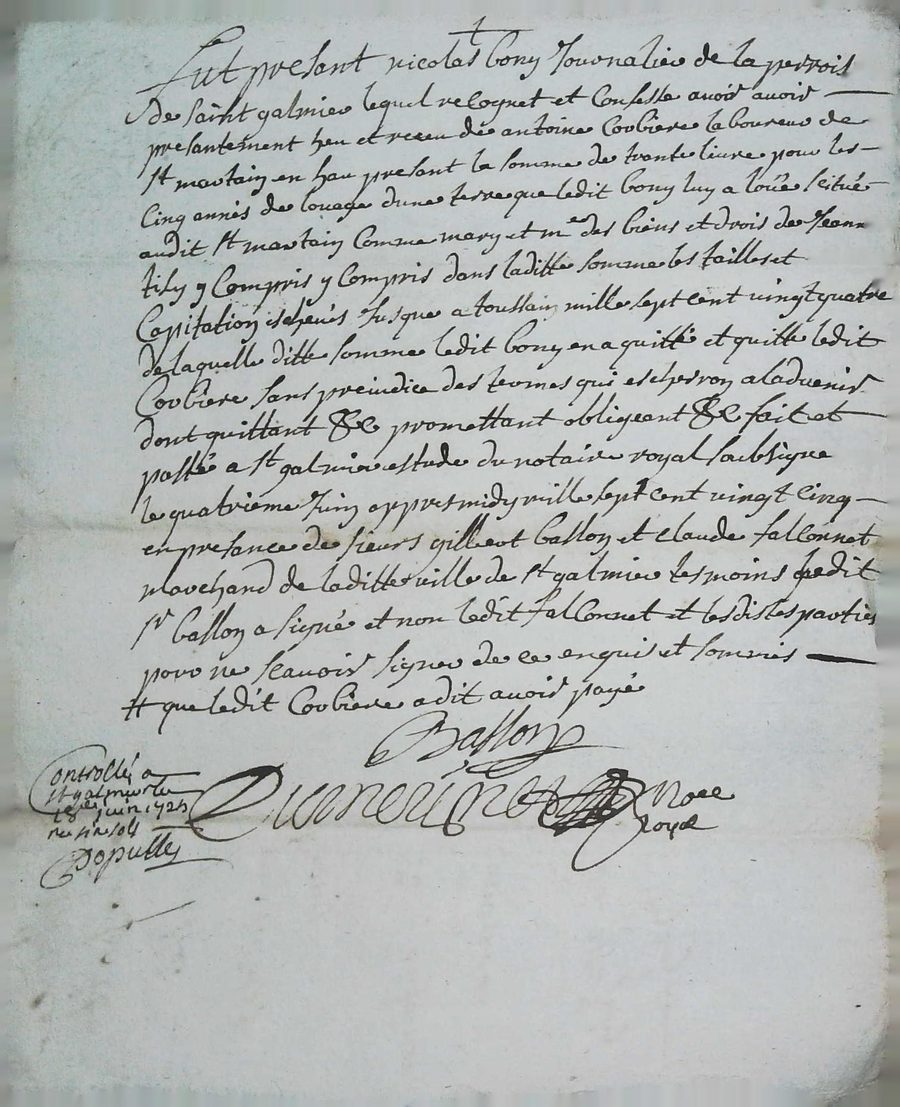 Fut presant nicolas bony Journalier de la perrois
de saint galmier lequel recognet et Confesse avois avois
presantement heu et receu de antoine Corbiere laboureur de
st martain en hau presant la somme de trante livre pour les
Cinq annés de louage dune terre que ledit bony luy a loüé scitué
audit st martain Comme mary et me des biens et drois de Jeann
tily y Compris y Compris dans laditte somme les tailles et
Capitation escheués Jusque a toussain mille sept cent vingt quatre
de laquelle ditte somme ledit bony en a quitté et quitte ledit
Corbiere sans preiudice des termes qui eschesron a ladvenir
dont quittant &c promettant obligeant &c fait et
passé a st galmier estude du notaire royal soubsigne
le quatrieme Juin appres midy mille sept cent vingt cinq
en presance de sieurs gilbert ballon et claude falconnet
marchand de laditte ville de st galmier tesmoins ledit
sr ballon a signé et non ledit falconnet et lesdistes parties
pour ne scavoir signer de ce enquis et sommés
# que ledit Corbiere a dit avoir payé
Ballon
Controllé a
st galmier le
18e juin 1725
sols
Dopulle
no.re
royal